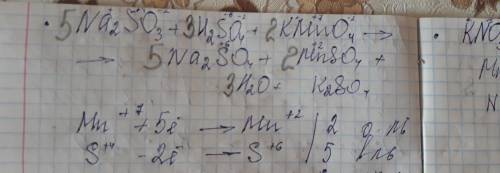 5Na₂SO₃ + 3H₂SO₄ + 2KMnO₄ →
→ 5Na₂SO₄ + 2MnSO₄ +
3H₂O + K₂SO₄
Mn⁺⁷ + 5ē → Mn⁺² | 2
S⁺⁴ - 2ē → S⁺⁶ | 5
KNO
N